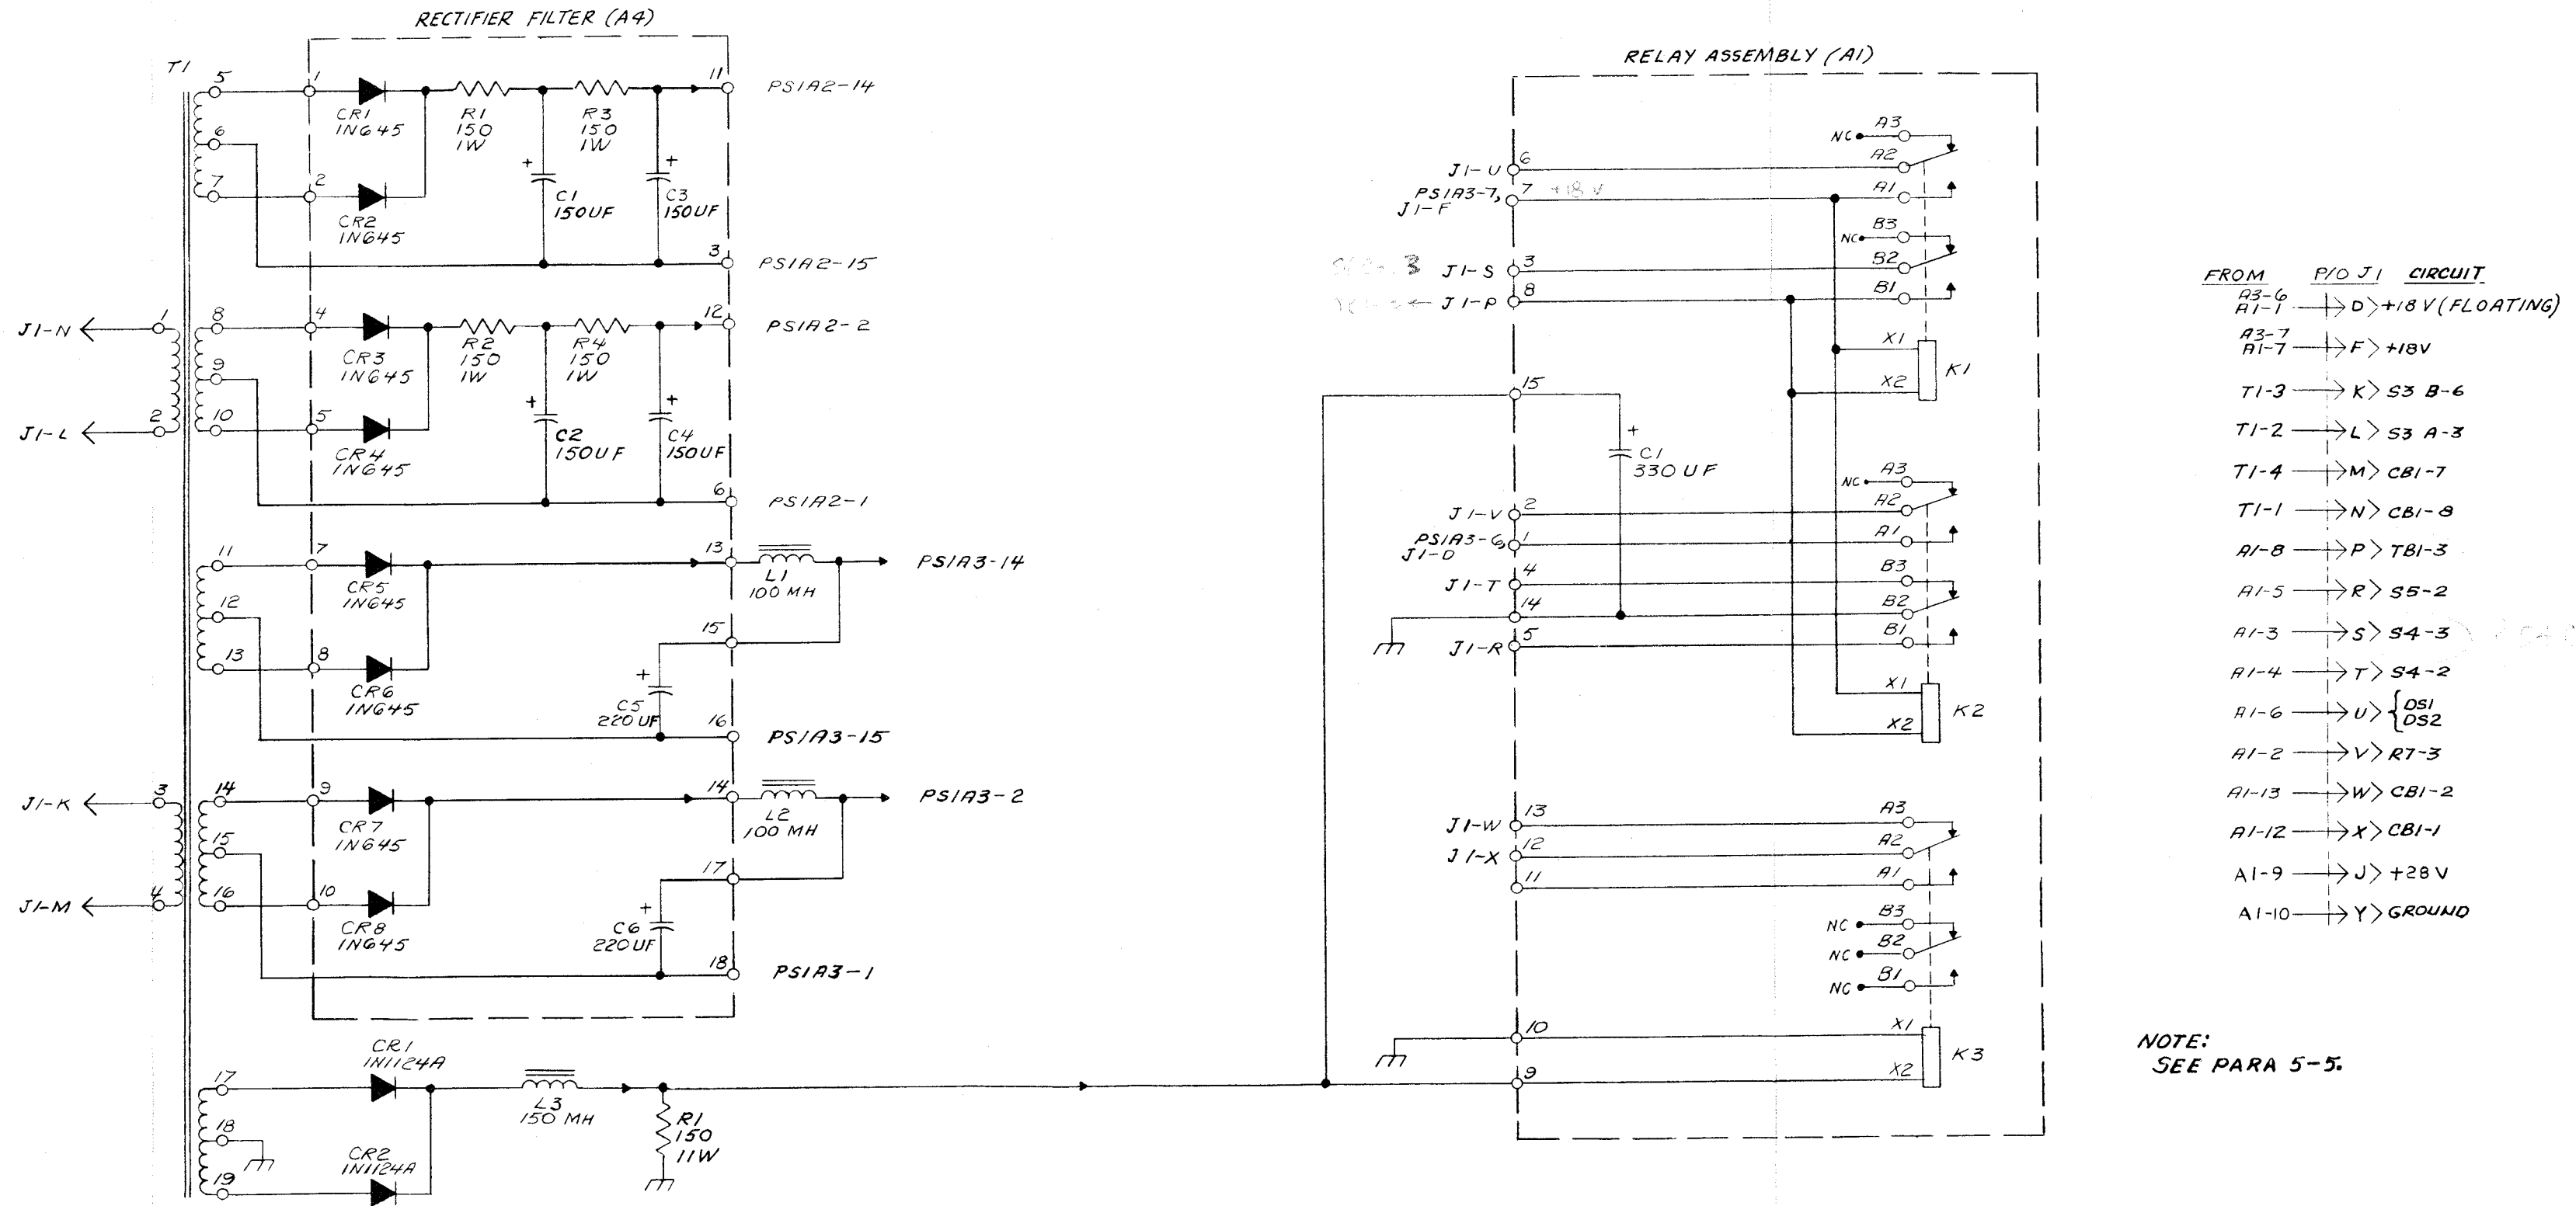 RECTIFIER FILTER (A4)
T1
5
6
7
1
2
CR1
1N645
CR2
1N645
R1
150
1W
R3
150
1W
+
C1
150UF
+
C3
150UF
11
PS1A2-14
3
PS1A2-15
J1-N
1
J1-L
2
8
9
10
4
5
CR3
1N645
CR4
1N645
R2
150
1W
R4
150
1W
+
C2
150UF
+
C4
150UF
12
PS1A2-2
6
PS1A2-1
11
12
13
7
8
CR5
1N645
CR6
1N645
13
L1
100 MH
PS1A3-14
15
+
C5
220 UF
16
PS1A3-15
J1-K
3
J1-M
4
14
15
16
9
10
CR7
1N645
CR8
1N645
14
L2
100 MH
PS1A3-2
17
+
C6
220 UF
18
PS1A3-1
17
18
19
CR1
1N1124A
CR2
1N1124A
L3
150 MH
R1
150
11W
RELAY ASSEMBLY (A1)
NC
A3
J1-U
6
A2
PS1A3-7,
J1-F
7
+18 V
A1
NC
B3
3
J1-S
3
B2
J1-P
8
B1
X1
X2
K1
15
+
C1
330 UF
NC
A3
J1-V
2
A2
PS1A3-6,
J1-D
1
A1
J1-T
4
B3
14
B2
J1-R
5
B1
X1
X2
K2
J1-W
13
A3
J1-X
12
A2
11
A1
NC
B3
NC
B2
NC
B1
10
X1
9
X2
K3
FROM P/O J1 CIRCUIT
A3-6
A1-1 D +18 V (FLOATING)
A3-7
A1-7 F +18V
T1-3 K S3 B-6
T1-2 L S3 A-3
T1-4 M CB1-7
T1-1 N CB1-8
A1-8 P TB1-3
A1-5 R S5-2
A1-3 S S4-3
A1-4 T S4-2
A1-6 U { DS1
DS2
A1-2 V R7-3
A1-13 W CB1-2
A1-12 X CB1-1
A1-9 J +28 V
A1-10 Y GROUND
NOTE:
SEE PARA 5-5.